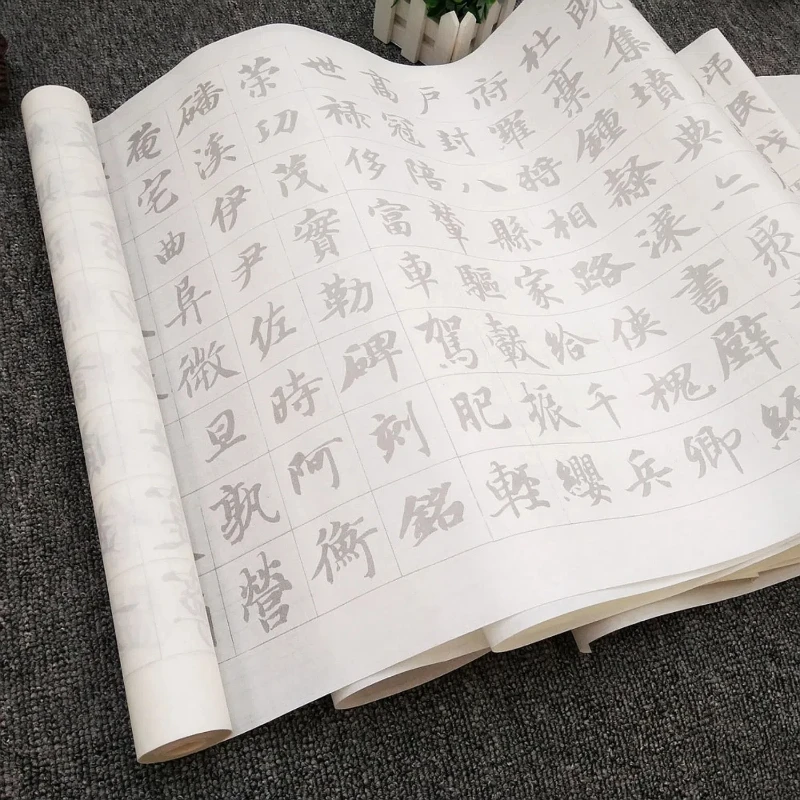 吊民伐
既集墳典亦聚
杜稾鍾隸漆書壁經
府羅將相路俠槐卿
戶封八縣家給千兵
高冠陪輦驅轂振纓
世祿侈富車駕肥輕
策功茂實勒碑刻銘
磻溪伊尹佐時阿衡
奄宅曲阜微旦孰營